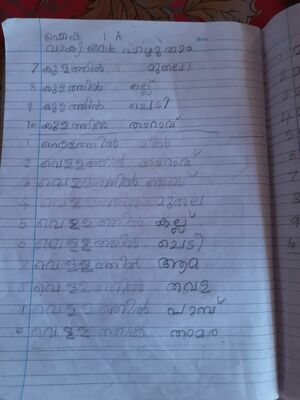 1 A
7 കുളത്തിൽ മുതല
8 കുളത്തിൽ കല്ല്
9 കുളത്തിൽ ചെടി
10 കുളത്തിൽ താറാവ്
1 വെള്ളത്തിൽ മീൻ
2 വെള്ളത്തിൽ താറാവ്
3 വെള്ളത്തിൽ
4 വെള്ളത്തിൽ മുതല
5 വെള്ളത്തിൽ കല്ല്
6 വെള്ളത്തിൽ ചെടി
7 വെള്ളത്തിൽ ആമ
8 വെള്ളത്തിൽ തവള
9 വെള്ളത്തിൽ പാമ്പ്
10 വെള്ളത്തിൽ താമര